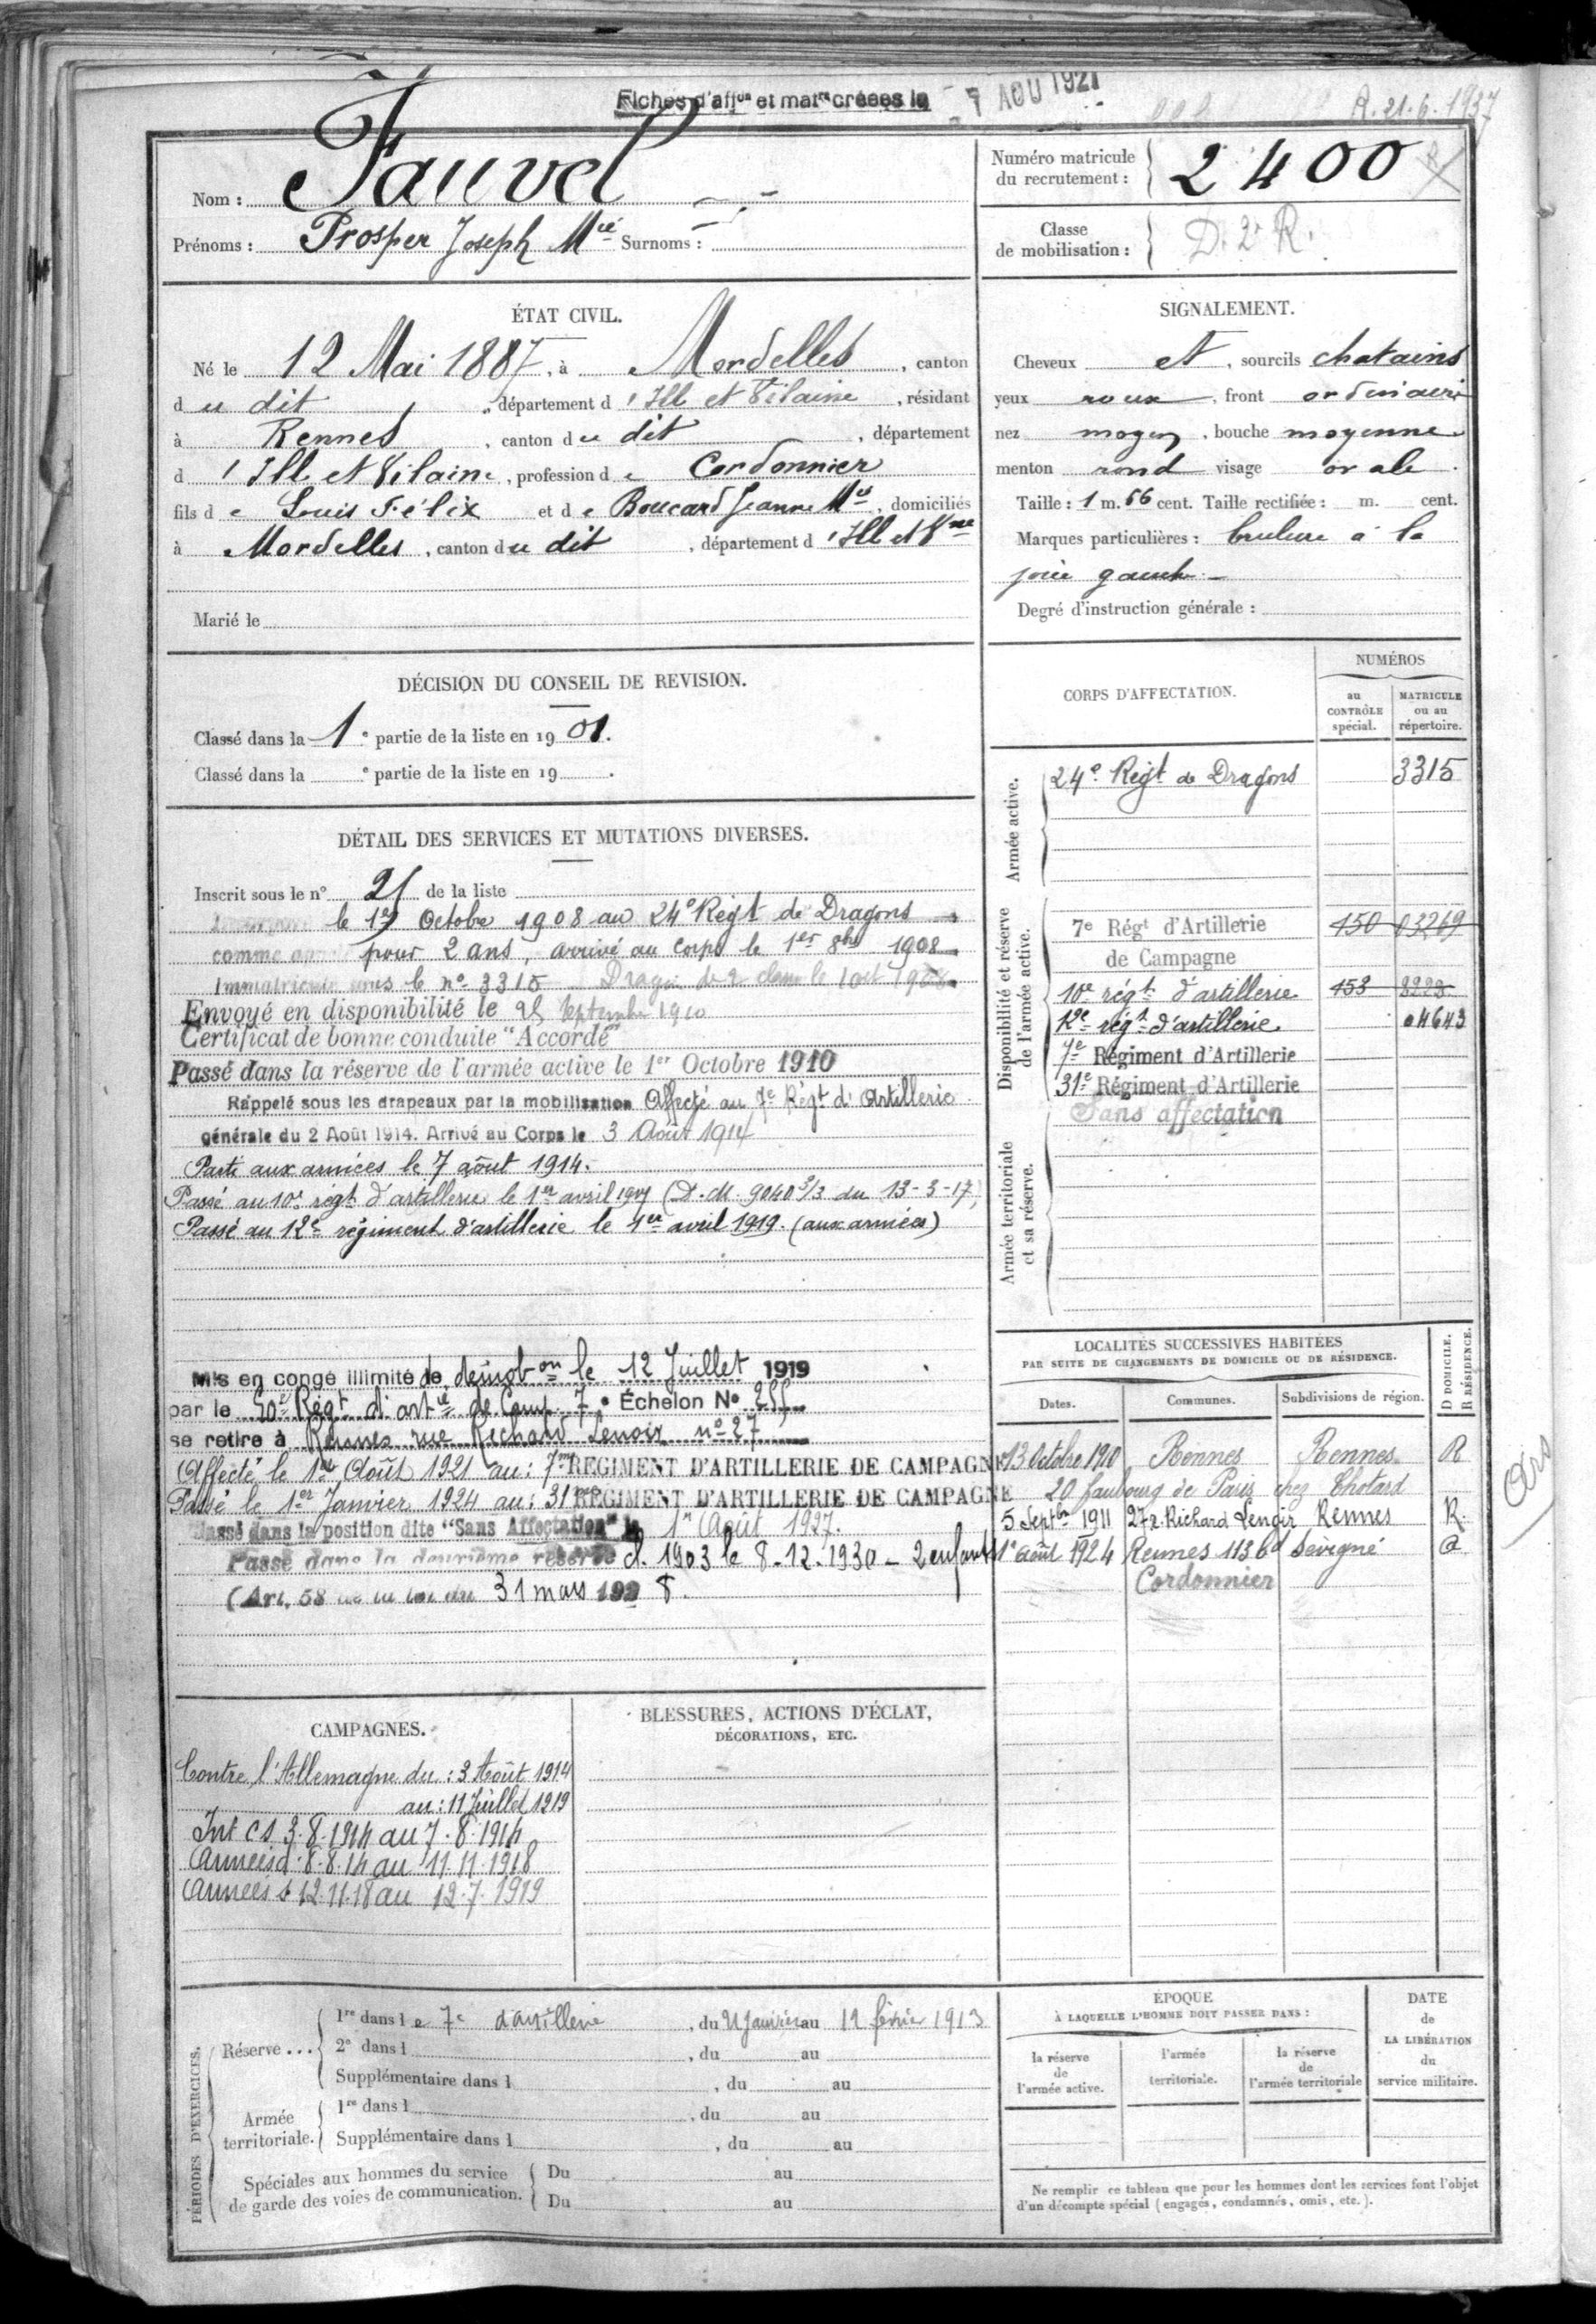 Fiches d'aff^on et mat^re créées le - 7 AOU 1921
R. 21.6.1937
Nom : Fauvel
Prénoms : Prosper Joseph M^ie Surnoms :
Numéro matricule du recrutement : 2400
Classe de mobilisation : D. 2^e R.
ÉTAT CIVIL.
Né le 12 Mai 1887, à Mordelles, canton
du dit, département d'Ille et Vilaine, résidant
à Rennes, canton du dit, département
d'Ille et Vilaine, profession de Cordonnier
fils de Louis Félix et de Boucard Jeanne M^ie, domiciliés
à Mordelles, canton du dit, département d'Ille et V^ne
Marié le
SIGNALEMENT.
Cheveux et, sourcils chatains
yeux roux, front ordinaire
nez moyen, bouche moyenne
menton rond visage ovale.
Taille : 1 m. 66 cent. Taille rectifiée : m. cent.
Marques particulières : brulure à la
joue gauche.
Degré d'instruction générale :
DÉCISION DU CONSEIL DE REVISION.
Classé dans la 1^e partie de la liste en 19 08.
Classé dans la ^e partie de la liste en 19 .
DÉTAIL DES SERVICES ET MUTATIONS DIVERSES.
Inscrit sous le n° de la liste
le 1^er Octobre 1908 au 24^e Reg^t de Dragons
comme pour 2 ans, arrivé au corps le 1^er 8^bre 1908
Immatriculé sous le n° 3315 Dragon de 2 classe le 1 oct 1908
Envoyé en disponibilité le 25 Septembre 1910
Certificat de bonne conduite "Accordé"
Passé dans la réserve de l'armée active le 1^er Octobre 1910
Rappelé sous les drapeaux par la mobilisation Affecté au 7^e Rég^t d'Artillerie
générale du 2 Août 1914. Arrivé au Corps le 3 Août 1914
Parti aux armées le 7 août 1914.
Passé au 10^e rég^t d'artillerie le 1^er avril 1917 (D. M. 9040 3/3 du 13-3-17)
Passé au 12^e régiment d'artillerie le 1^er avril 1919. (aux armées)
Mis en congé illimité de démob^on le 12 Juillet 1919
par le 50^e Rég^t d'art^ie de Camp. 7^e Échelon N°
se retire à Rennes rue Richard Lenoir n° 27
Affecté le 1^er Août 1921 au : 7^me REGIMENT D'ARTILLERIE DE CAMPAGNE
Passé le 1^er Janvier 1924 au : 31^me REGIMENT D'ARTILLERIE DE CAMPAGNE
Passé dans la position dite "Sans Affectation" le 1^er Août 1927.
Passé dans la deuxième réserve cl. 1903 le 8-12-1930 - 2 enfants
(Art. 58 de la loi du 31 mars 1928.
CORPS D'AFFECTATION.
NUMÉROS
au CONTRÔLE spécial.
MATRICULE ou au répertoire.
Armée active.
24^e Reg^t de Dragons 3315
Disponibilité et réserve de l'armée active.
7^e Rég^t d'Artillerie 150 03269
de Campagne
10^e rég^t d'artillerie 153 8223
12^e rég^t d'artillerie 04643
7^e Régiment d'Artillerie
31^e Régiment d'Artillerie
Sans affectation
Armée territoriale et sa réserve.
LOCALITÉS SUCCESSIVES HABITÉES
PAR SUITE DE CHANGEMENTS DE DOMICILE OU DE RÉSIDENCE.
D DOMICILE. R RÉSIDENCE.
Dates. Communes. Subdivisions de région.
13 Octobre 1910 Rennes Rennes R
20 faubourg de Paris chez Chotard
5 Sept^bre 1911 27 r. Richard Lenoir Rennes R.
1^er août 1924 Rennes 113 b^d Sévigné
Cordonnier
CAMPAGNES.
Contre l'Allemagne du : 3 Août 1914
au : 11 Juillet 1919
Int CS 3.8.1914 au 7.8.1914
Armées d 8.8.14 au 11.11.1918
Armées s 12.11.18 au 12.7.1919
BLESSURES, ACTIONS D'ÉCLAT,
DÉCORATIONS, ETC.
PÉRIODES D'EXERCICES.
Réserve ...
1^re dans le 7^e d'artillerie, du Janvier au 12 février 1913
2^e dans l , du au
Supplémentaire dans l , du au
Armée territoriale.
1^re dans l , du au
Supplémentaire dans l , du au
Spéciales aux hommes du service
de garde des voies de communication.
Du au
Du au
ÉPOQUE
À LAQUELLE L'HOMME DOIT PASSER DANS :
la réserve de l'armée active.
l'armée territoriale.
la réserve de l'armée territoriale
DATE de LA LIBÉRATION du service militaire.
Ne remplir ce tableau que pour les hommes dont les services font l'objet
d'un décompte spécial (engagés, condamnés, omis, etc.).